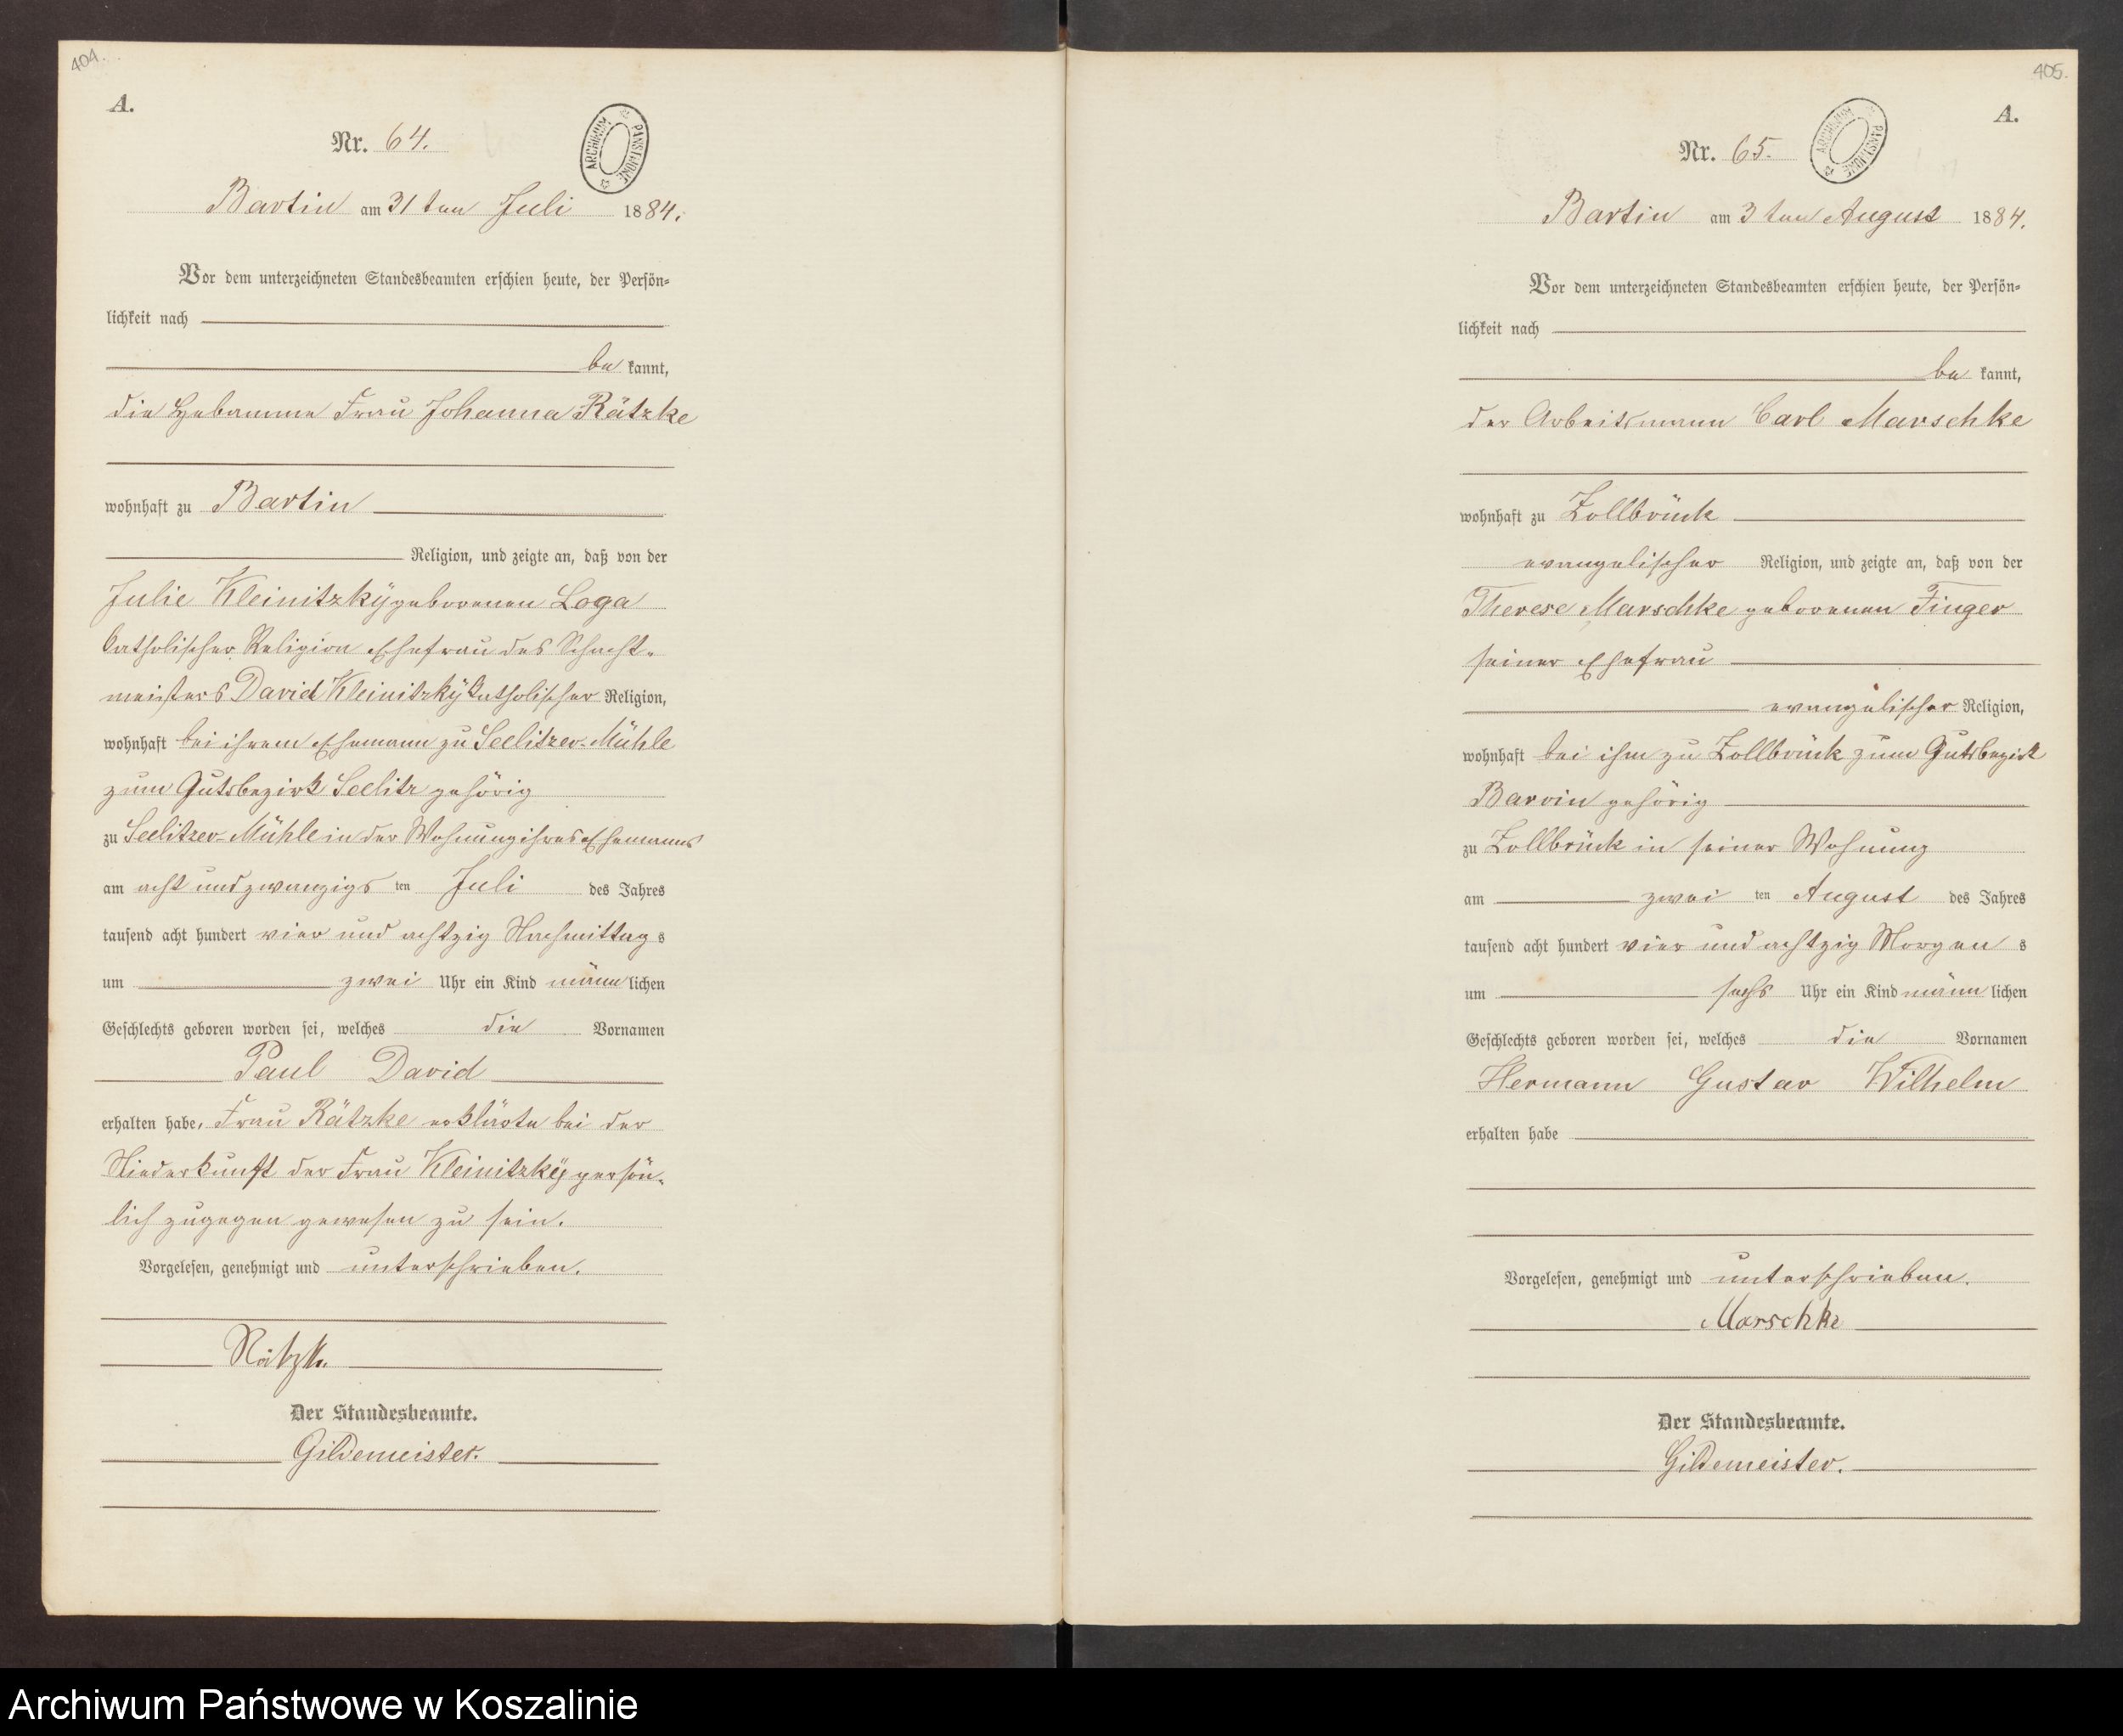 404.
A.
Nr. 64.
ARCHIWUM PAŃSTWOWE
Bartin am 31ten Juli 1884.
Vor dem unterzeichneten Standesbeamten erschien heute, der Persön-
lichkeit nach
bekannt,
die Hebamme Frau Johanna Rätzke
wohnhaft zu Bartin
Religion, und zeigte an, daß von der
Julie Kleinitzky geborenen Loga
katholischer Religion Ehefrau des Schacht-
meisters David Kleinitzky katholischer Religion,
wohnhaft bei ihrem Ehemann zu Seelitzer-Mühle
zum Gutsbezirk Seelitz gehörig
zu Seelitzer-Mühle in der Wohnung ihres Ehemanns
am acht und zwanzigsten Juli des Jahres
tausend acht hundert vier und achtzig Nachmittags
um zwei Uhr ein Kind männlichen
Geschlechts geboren worden sei, welches die Vornamen
Paul David
erhalten habe. Frau Rätzke erklärte bei der
Niederkunft der Frau Kleinitzky persön-
lich zugegen gewesen zu sein.
Vorgelesen, genehmigt und unterschrieben.
Rätzke
Der Standesbeamte.
Gildemeister.
405.
A.
Nr. 65.
ARCHIWUM PAŃSTWOWE
Bartin am 3ten August 1884.
Vor dem unterzeichneten Standesbeamten erschien heute, der Persön-
lichkeit nach
bekannt,
der Arbeitsmann Carl Marschke
wohnhaft zu Zollbrück
evangelischer Religion, und zeigte an, daß von der
Therese Marschke geborenen Finger
seiner Ehefrau
evangelischer Religion,
wohnhaft bei ihm zu Zollbrück zum Gutsbezirk
Barvin gehörig
zu Zollbrück in seiner Wohnung
am zweiten August des Jahres
tausend acht hundert vier und achtzig Morgens
um sechs Uhr ein Kind männlichen
Geschlechts geboren worden sei, welches die Vornamen
Hermann Gustav Wilhelm
erhalten habe
Vorgelesen, genehmigt und unterschrieben.
Marschke
Der Standesbeamte.
Gildemeister.
Archiwum Państwowe w Koszalinie